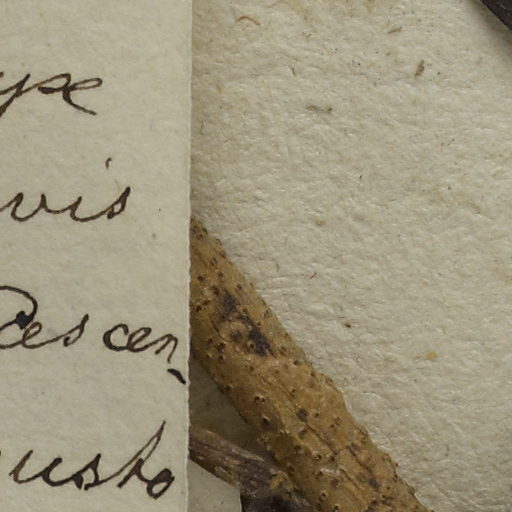 ype
vis
Pescen-
usto